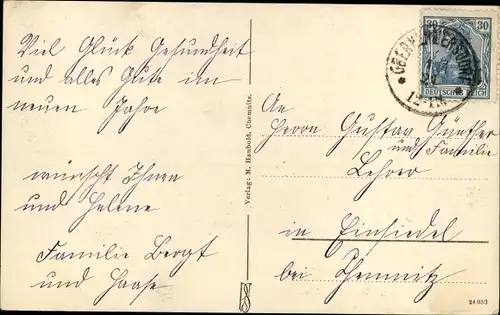 Viel Glück Gesundheit
und alles Gute im
neuen Jahre
wünscht Ihnen
und Helene
Familie Bergt
und Haase
Verlag: M. Haubold, Chemnitz.
30 30
DEUTSCHES REICH
12-1N
An
Herrn Gustav Günther
und Familie
Lehrer
in Einsiedel
bei Chemnitz
24 053